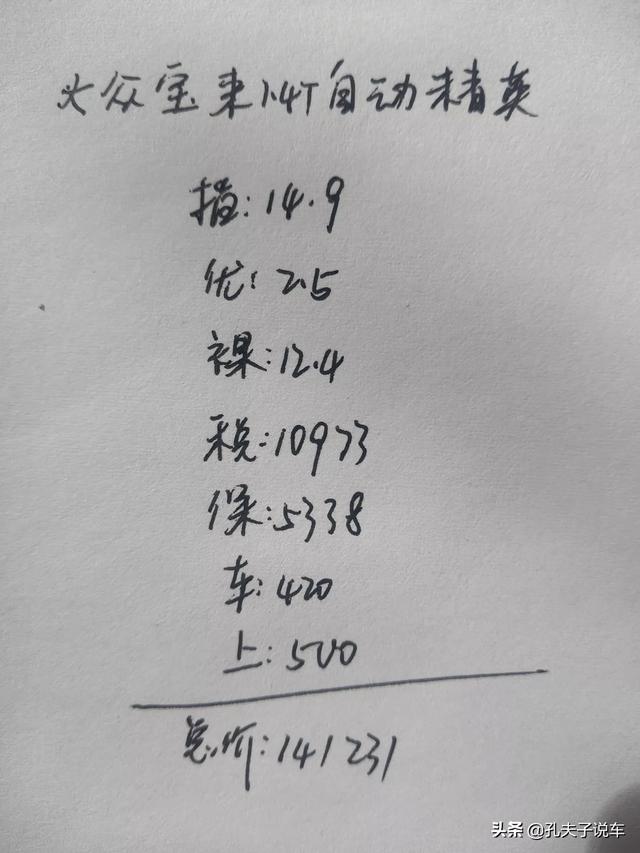 大众宝来1.4T自动精英
指:14.9
优:2.5
裸:12.4
税:10973
保:5338
车:420
上:500
总价:141231
头条 @孔夫子说车